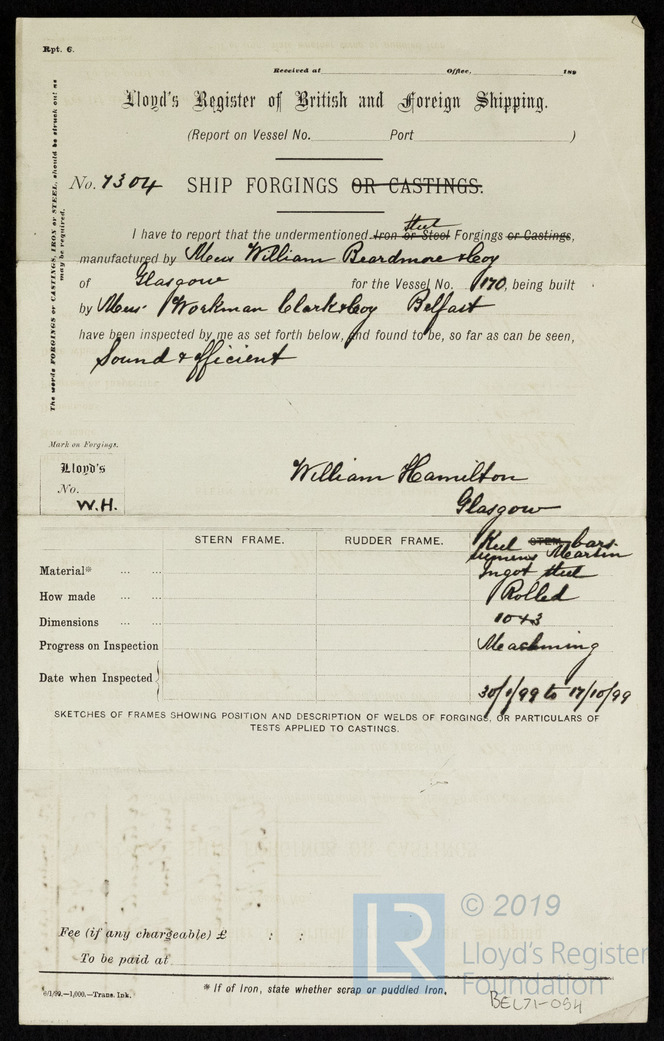 Rpt. 6.
Received at Office, 189
Lloyd's Register of British and Foreign Shipping.
(Report on Vessel No. Port )
No. 7304 SHIP FORGINGS OR CASTINGS.
The words FORGINGS or CASTINGS, IRON or STEEL, should be struck out as may be required.
steel
I have to report that the undermentioned Iron or Steel Forgings or Castings,
manufactured by Messrs William Beardmore & Coy
of Glasgow for the Vessel No. 170, being built
by Messrs Workman Clark & Coy Belfast
have been inspected by me as set forth below, and found to be, so far as can be seen,
Sound & efficient
Mark on Forgings.
Lloyd's
No.
W.H.
William Hamilton
Glasgow
STERN FRAME. RUDDER FRAME. Keel STEM bars
Siemens Martin
Material* Ingot steel
How made Rolled
Dimensions 10 x 3
Progress on Inspection Machining
Date when Inspected 30/1/99 to 17/10/99
SKETCHES OF FRAMES SHOWING POSITION AND DESCRIPTION OF WELDS OF FORGINGS, OR PARTICULARS OF
TESTS APPLIED TO CASTINGS.
Fee (if any chargeable) £ : :
To be paid at
6/1/99.—1,000.—Trans. Ink.
* If of Iron, state whether scrap or puddled Iron.
LR
© 2019
Lloyd's Register
Foundation
BEL71-054